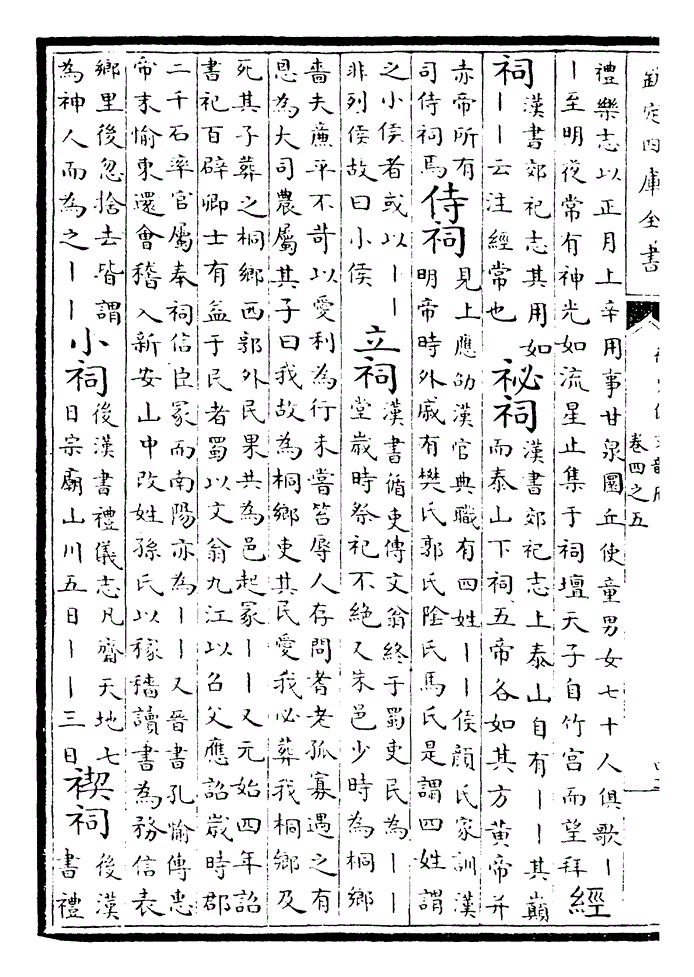 欽定四庫全書
卷四之五
禮樂志以正月上辛用事甘泉圜丘使童男女七十人俱歌丨
丨至明夜常有神光如流星止集于祠壇天子自竹宮而望拜
經
祠
漢書郊祀志其用如
丨丨云注經常也
祕祠
漢書郊祀志上泰山自有丨丨其巔
而泰山下祠五帝各如其方黃帝并
赤帝所有
司侍祠焉
侍祠
見上應劭漢官典職有四姓丨丨侯顔氏家訓漢
明帝時外戚有樊氏郭氏陰氏馬氏是謂四姓謂
之小侯者或以丨丨
非列侯故曰小侯
立祠
漢書循吏傳文翁終于蜀吏民為丨丨
堂歲時祭祀不絶又朱邑少時為桐鄉
嗇夫廉平不苛以愛利為行未嘗笞辱人存問耆老孤寡遇之有
恩為大司農屬其子曰我故為桐鄉吏其民愛我必葬我桐鄉及
死其子葬之桐鄉西郭外民果共為邑起冢丨丨又元始四年詔
書祀百辟卿士有益于民者蜀以文翁九江以召父應詔歲時郡
二千石率官屬奉祠信臣冢而南陽亦為丨丨又晉書孔愉傳惠
帝末愉東還會稽入新安山中改姓孫氏以稼穡讀書為務信表
鄉里後忽捨去皆謂
為神人而為之丨丨
小祠
後漢書禮儀志凡齋天地七
日宗廟山川五日丨丨三日
禊祠
後漢
書禮